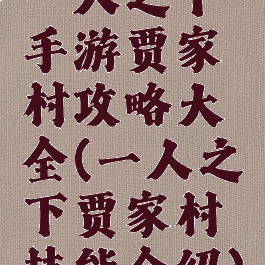 一人之下
手游贾家
村攻略大
全(一人之
下贾家村
技能介绍)